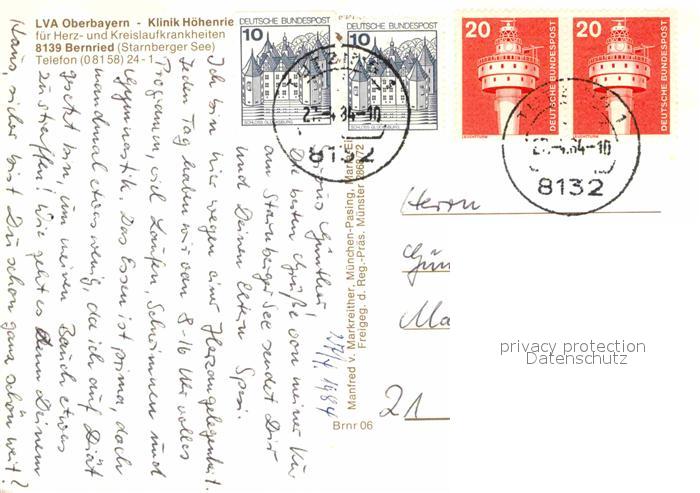 LVA Oberbayern - Klinik Höhenrie
für Herz- und Kreislaufkrankheiten
8139 Bernried (Starnberger See)
Telefon (0 81 58) 24-1
Günther!
Die besten Grüße von meiner Kur
am Starnberger See sendet Dir
und Deinen Eltern
Ich bin hier wegen einer Herzangelegenheit.
Jeden Tag haben wir von 8-16 Uhr volles
Programm, viel Laufen, Schwimmen und
Gymnastik. Das Essen ist prima, doch
manchmal etwas wenig, da ich auf Diät
gesetzt bin, um meinen Bauch etwas
zu straffen! Wie geht es Deinem
Haus, sicher bist Du schon ganz schön weit?
27/4. 1984
Manfred v. Markreither, München-Pasing,
Freigeg. d. Reg.-Präs. Münster
Brnr 06
DEUTSCHE BUNDESPOST
10
SCHLOSS GLÜCKSBURG
DEUTSCHE BUNDESPOST
10
SCHLOSS GLÜCKSBURG
20
DEUTSCHE BUNDESPOST
LEUCHTTURM
20
DEUTSCHE BUNDESPOST
LEUCHTTURM
TUTZING
27.-4.84-10
8132
TUTZING 1
27.-4.84-10
8132
Herrn
Gün
Ma
21
privacy protection
Datenschutz